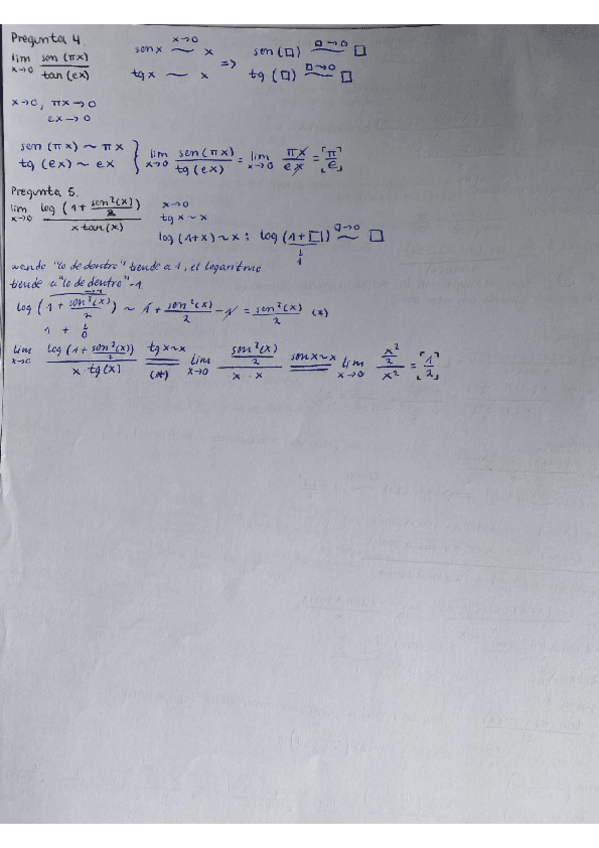 Pregunta 4.
lim x→0 sen(πx)/tan(ex)   sen x ~ (x→0) x => sen(□) ~ (□→0) □
tg x ~ x   tg(□) ~ (□→0) □
x→0, πx→0
ex→0
sen(πx) ~ πx
tg(ex) ~ ex } lim x→0 sen(πx)/tg(ex) = lim x→0 πx/ex = π/e
Pregunta 5.
lim x→0 log(1+sen²(x)/2)/(x tan(x))   x→0
tg x ~ x
log(1+x) ~ x : log(1+□) ~ (□→0) □
↓
1
cuando "lo de dentro" tiende a 1, el logaritmo
tiende a "lo de dentro"-1.
log(1+sen²(x)/2) ~ 1+sen²(x)/2-1 = sen²(x)/2 (*)
1 + 0
lim x→0 log(1+sen²(x)/2)/(x·tg(x)) = (tg x~x) (*) lim x→0 (sen²(x)/2)/(x·x) = (sen x~x) lim x→0 (x²/2)/x² = 1/2